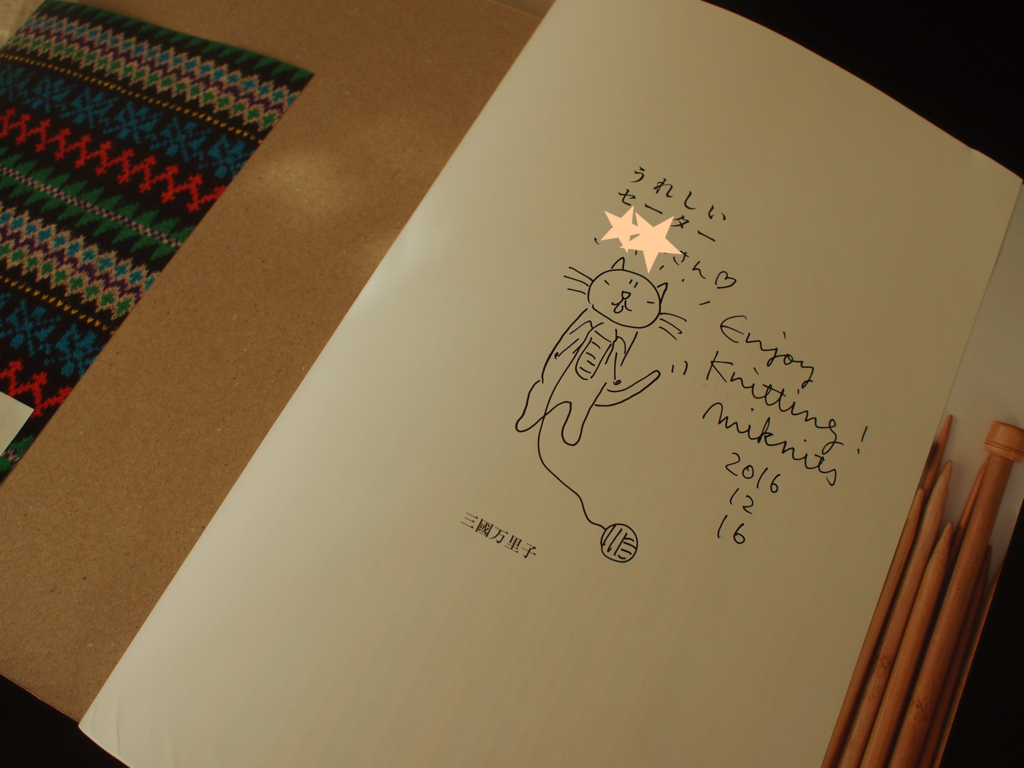 うれしい
セーター
さん♡
Enjoy
Knitting!
miknits
2016
12
16
三國万里子